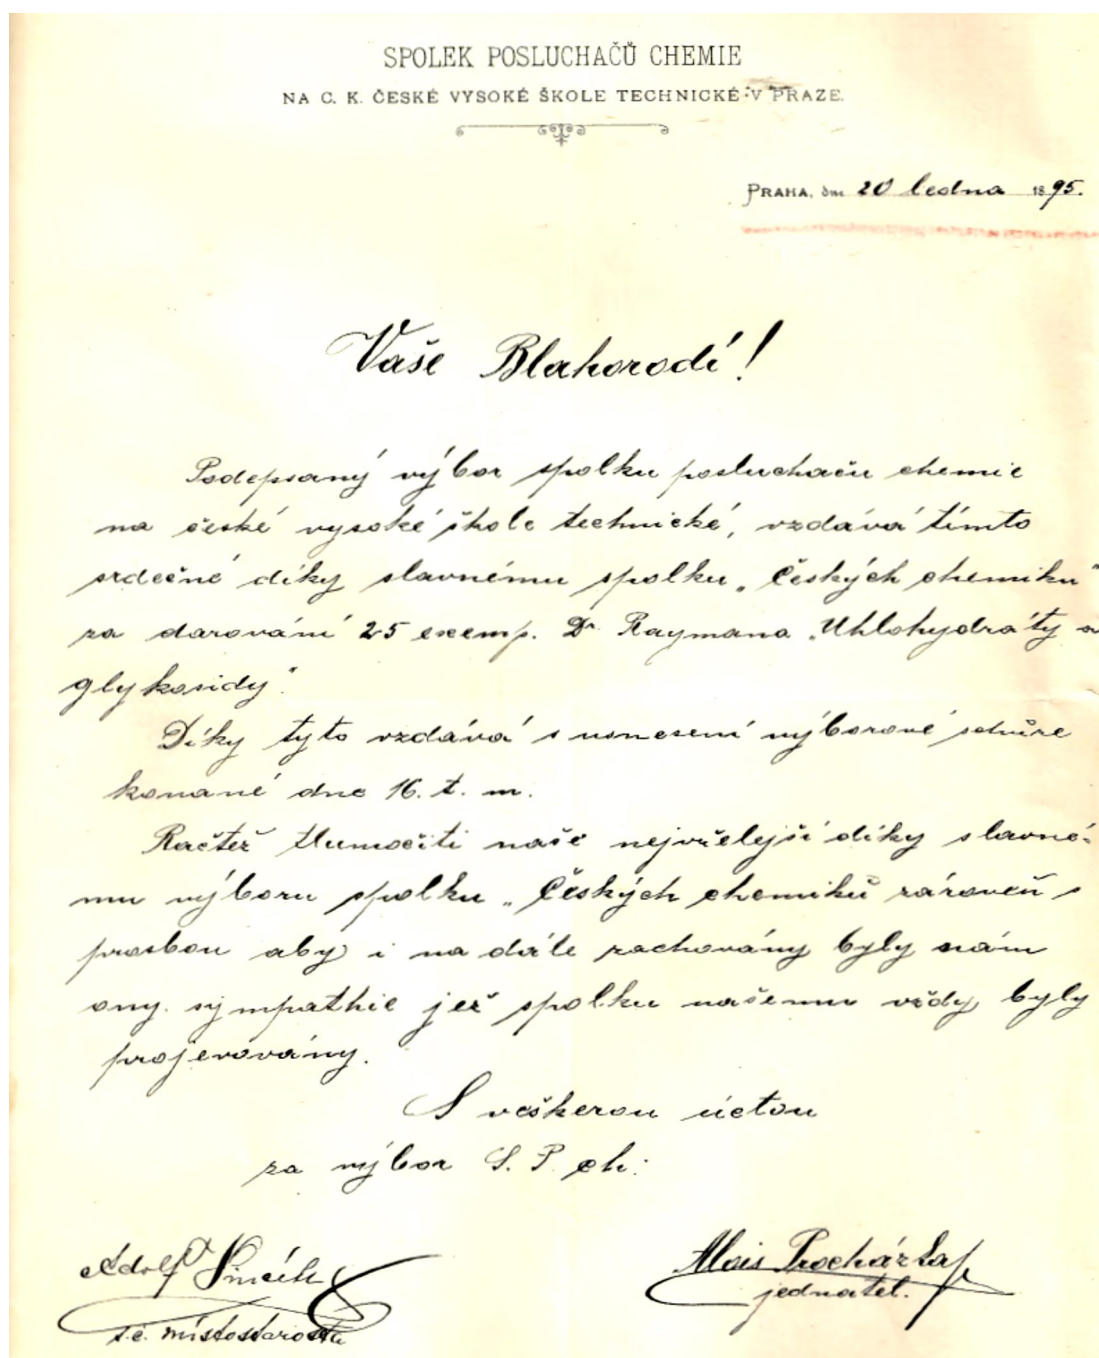 SPOLEK POSLUCHAČŮ CHEMIE
NA C. K. ČESKÉ VYSOKÉ ŠKOLE TECHNICKÉ V PRAZE.
PRAHA, dne 20 ledna 1895.
Vaše Blahorodí!
Podepsaný výbor spolku posluchačů chemie
na české vysoké škole technické, vzdává tímto
srdečné díky slavnému spolku „Českých chemiků"
za darování 25 exemp. Dr Raymana „Uhlohydráty a
glykosidy".
Díky tyto vzdává s usnesení výborové schůze
konané dne 16. t. m.
Račtež tlumočiti naše nejvřelejší díky slavné-
mu výboru spolku „Českých chemiků zároveň s
prosbou aby i na dále zachovány byly nám
ony sympathie jež spolku našemu vždy byly
projevovány.
S veškerou úctou
za výbor S. P. ch:
Adolf
Alois Procházka
jednatel.
t.č. místostarosta